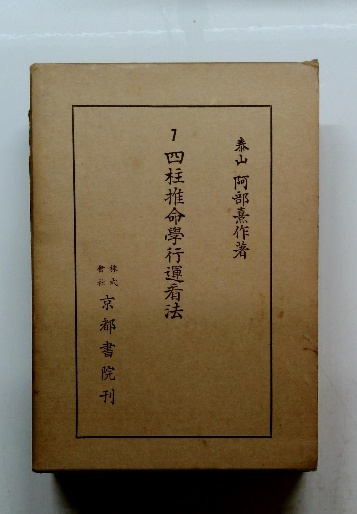 泰山 阿部熹作著
7 四柱推命學行運看法
株式會社 京都書院刊